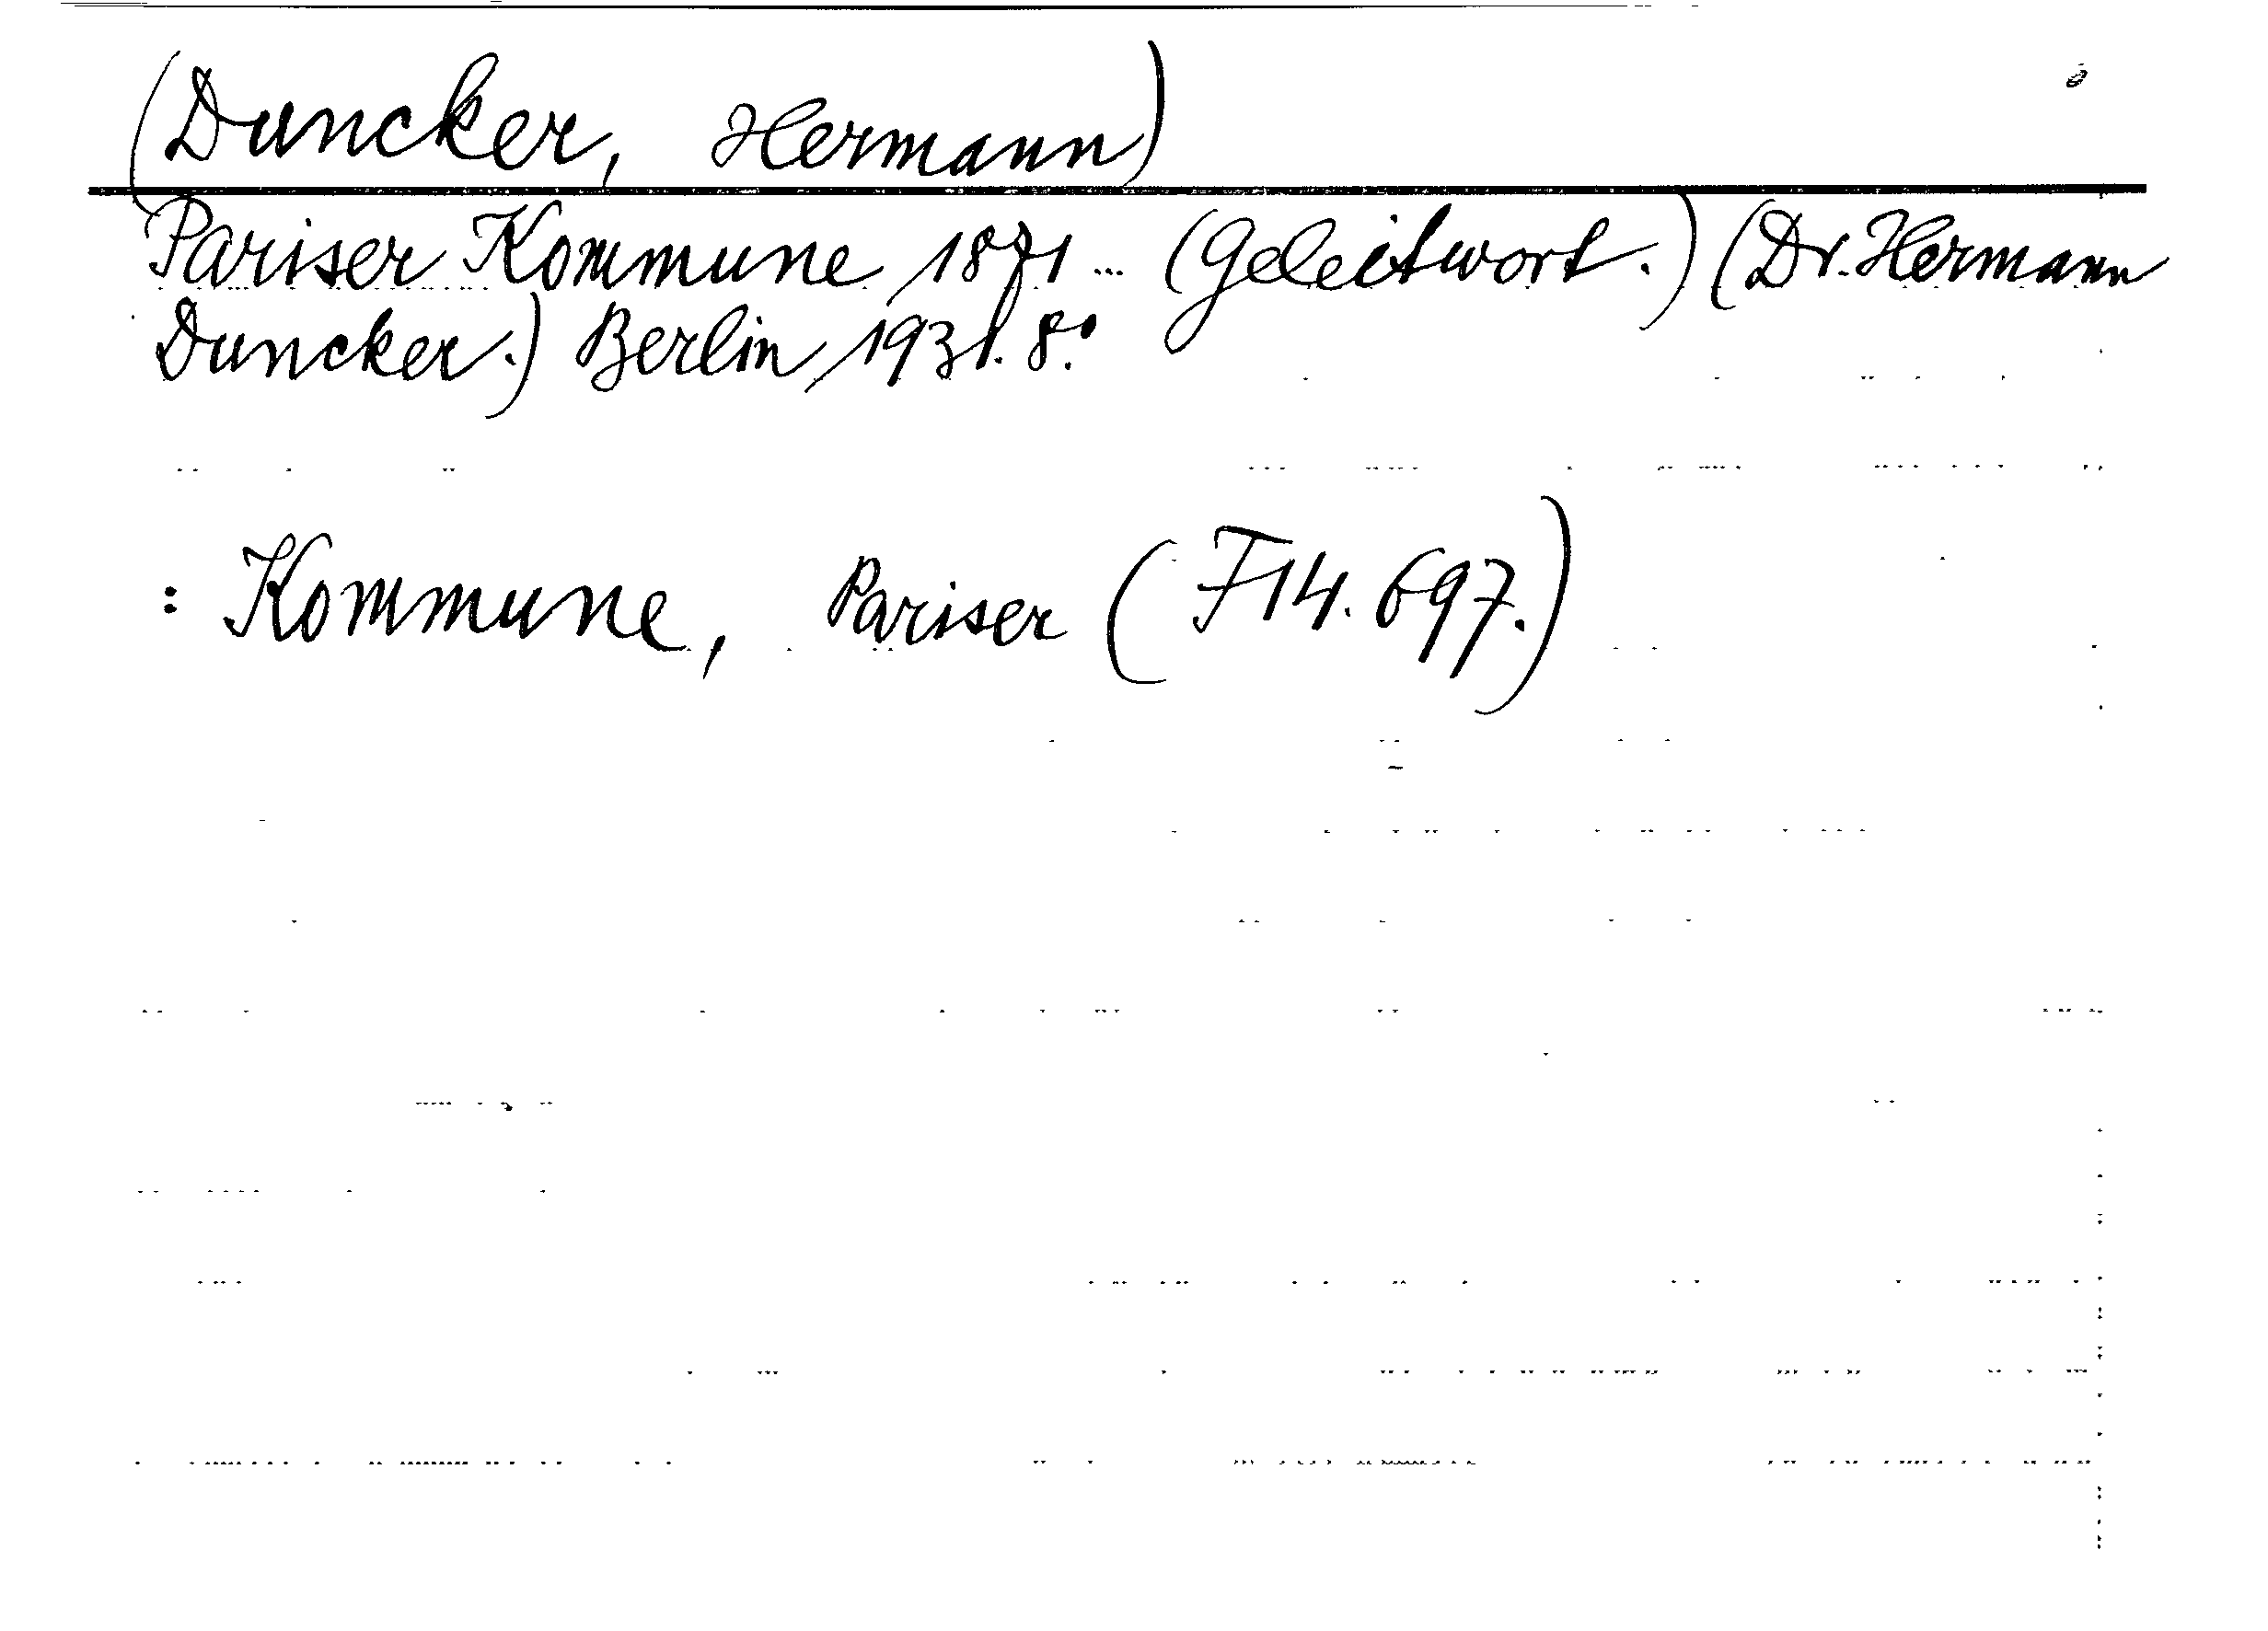 (Duncker, Hermann)
Pariser Kommune 1871 ... (Geleitwort.) (Dr. Hermann
Duncker.) Berlin, 1931. 8.°
: Kommune, Pariser (F14.697.)